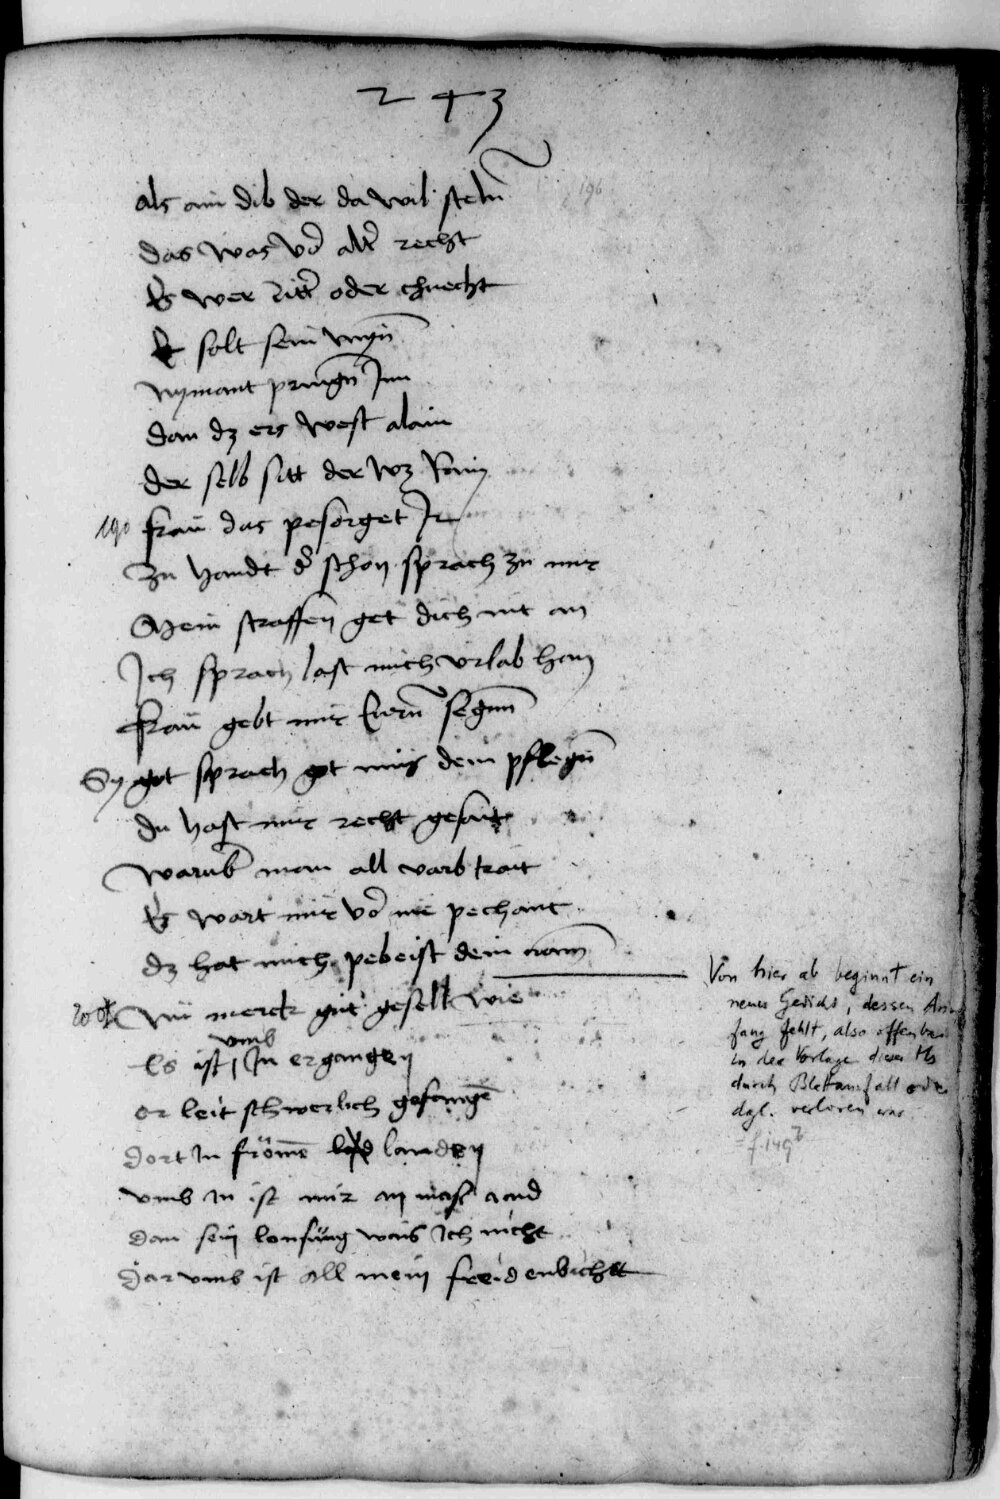 243
196
als ain dib der da wil steln̄
das was vō alt̄ recht
Es wer ritt̄ oder chnecht
Er solt sein mȳn̄
nymant pringn̄ Inn
dan dz ers west alain
der selb sitt der wz Rain
190 fraü das pesorget Ir
zu handt d̄ schon sprach zu mir
Mein straffen get dich nit an
Ich sprach last mich vrlab han
fraü gebt mir Ewrn̄ segenn̄
Sy got sprach got mus dein pflegn̄
du hast mir recht gesait
warūb man all varb trait
Es wart mir vō nie pechant
dz hat mich pebeist dein nam̄
200 Nu merck gut gesell wie
vmb
Es ist / In ergangen
er leit schwerlich gefangē
dort In frömē landen
vmb In ist mir an mass and
dan sein lonsung wais Ich nicht
dar vmb ist all mein freid enbicht
Von hier ab beginnt ein
neues Gedicht, dessen An
fang fehlt, also offenbar
in der Vorlage dieser Hs
durch Blattausfall oder
dgl. verloren war.
= f. 149